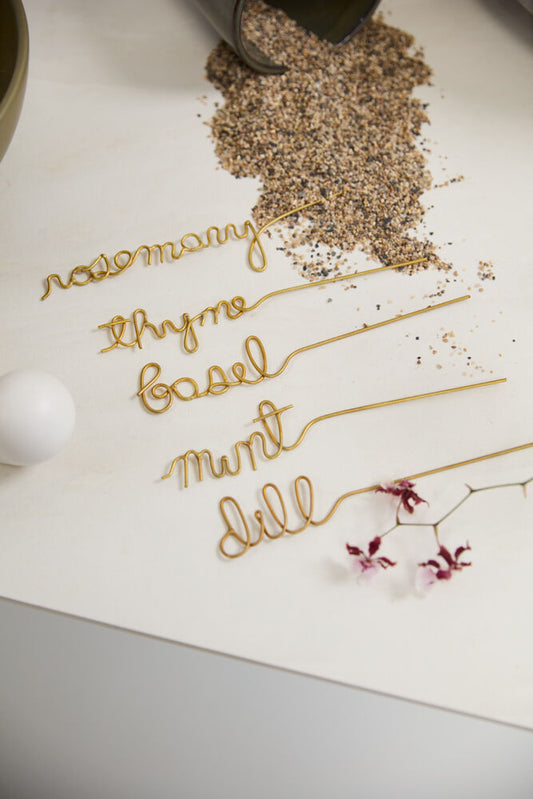 rosemary
thyme
basel
mint
dill